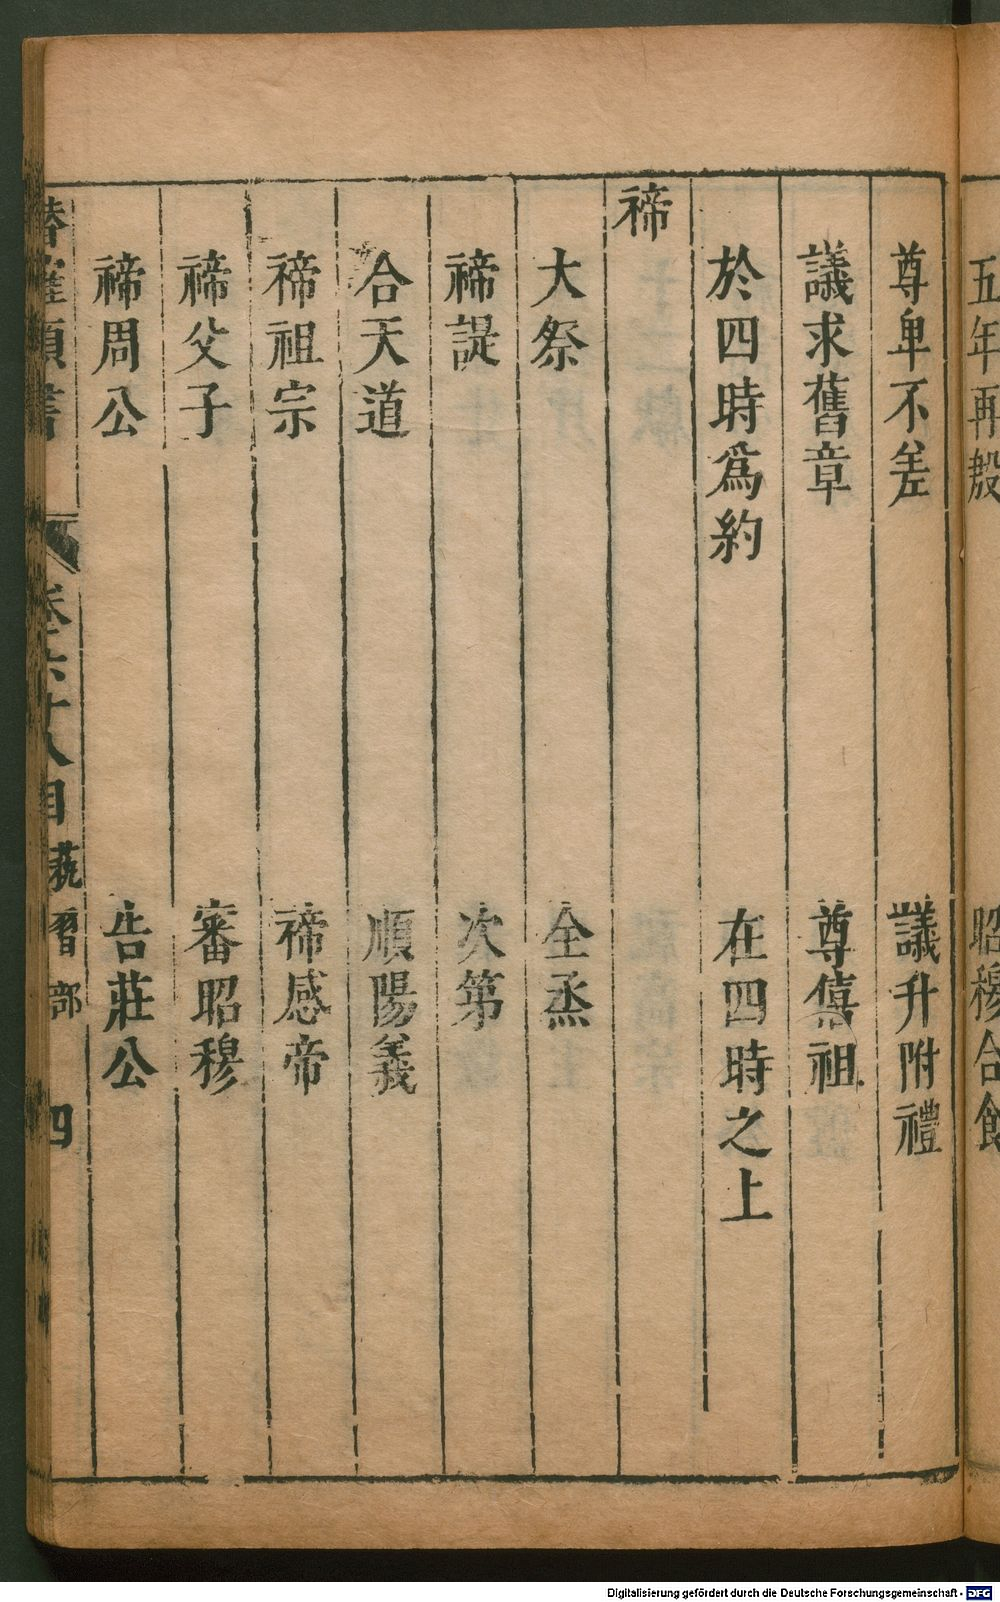 五年再殷 昭穆合食
尊卑不差 議升附禮
議求舊章 尊僖祖
於四時爲約 在四時之上
禘
大祭 全烝
禘諟 次第
合天道 順陽義
禘祖宗 禘感帝
禘父子 審昭穆
禘周公 告莊公
卷六十八目 四
Digitalisierung gefördert durch die Deutsche Forschungsgemeinschaft - DFG